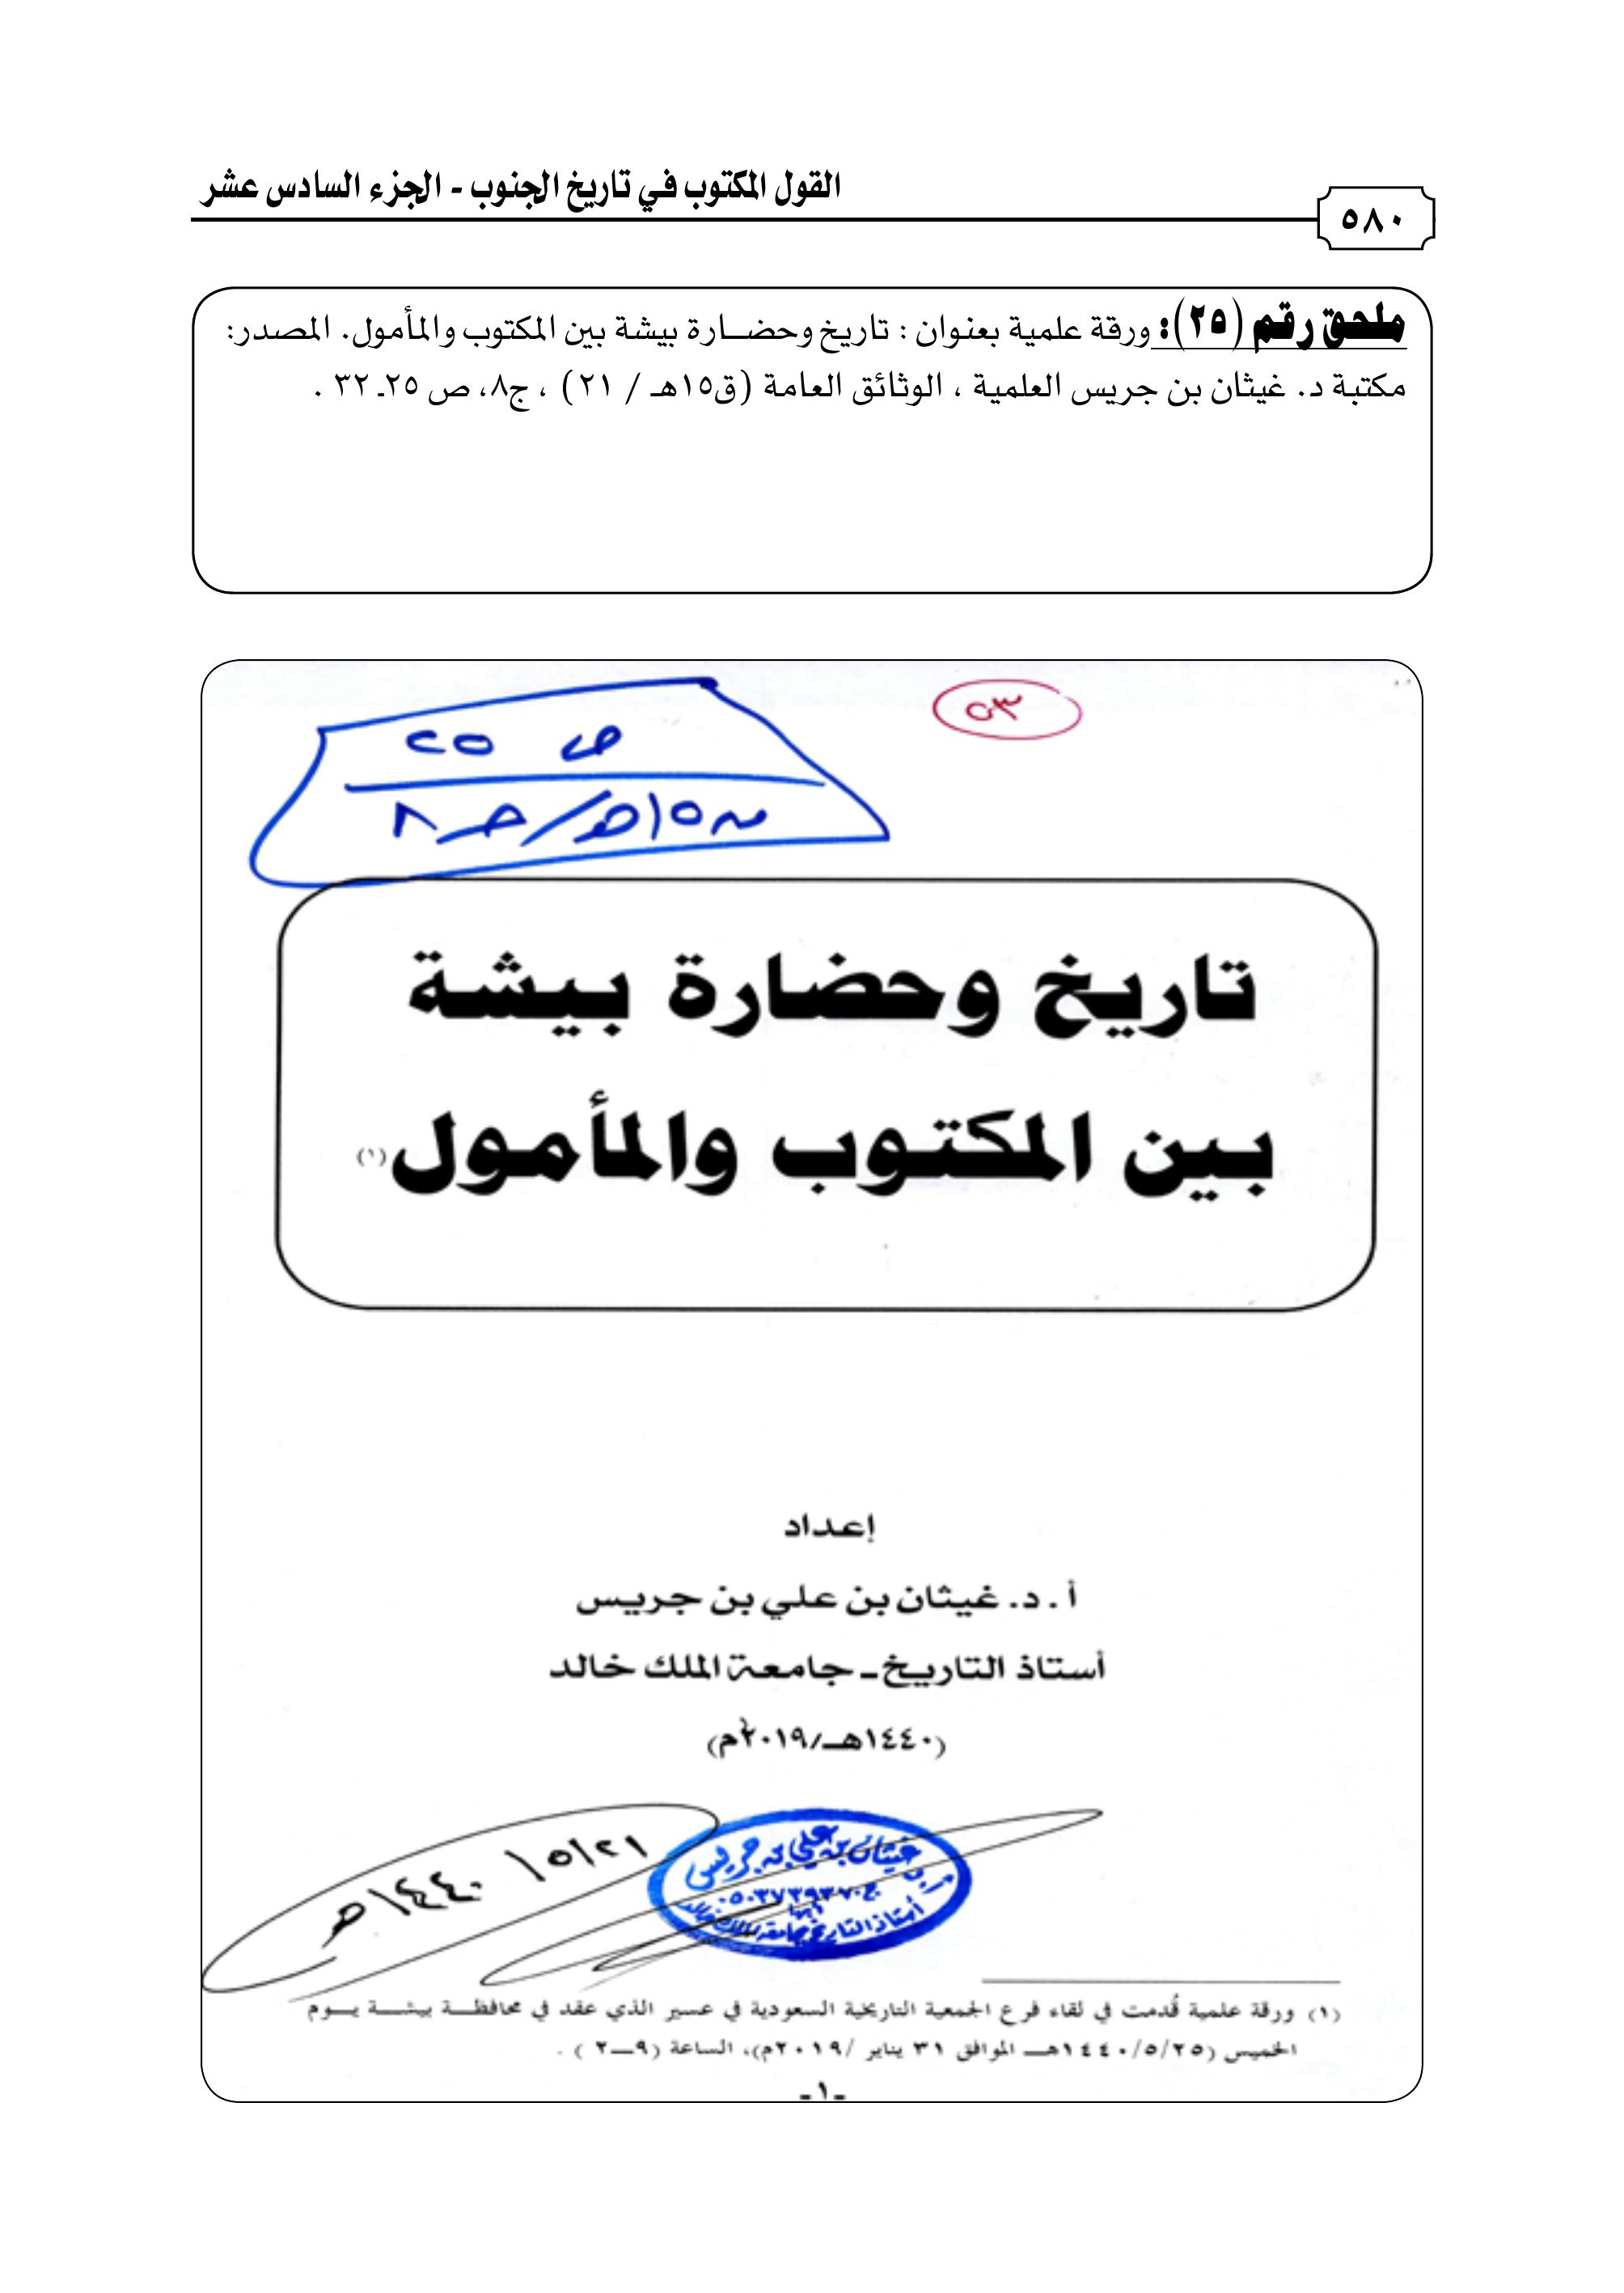 القول المكتوب في تاريخ الجنوب - الجزء السادس عشر
٥٨٠
ملحق رقم (٢٥): ورقة علمية بعنوان : تاريخ وحضــارة بيشة بين المكتوب والمأمول. المصدر:
مكتبة د. غيثان بن جريس العلمية ، الوثائق العامة (ق١٥هـ / ٢١) ، ج٨، ص ٢٥ـ ٣٢ .
٥٣
ص ٢٥
ق١٥هـ/جـ٨
تاريخ وحضارة بيشة
بين المكتوب والمأمول(١)
إعداد
أ . د. غيثان بن علي بن جريس
أستاذ التاريخ ـ جامعة الملك خالد
(١٤٤٠هـ/٢٠١٩م)
٢١/٥/١٤٤٠هـ
أ.د غيثان بن علي بن جريس
ج.٠٥٠٣٧٣٩٣٧٠
أبها
أستاذ التاريخ بجامعة الملك خالد
(١) ورقة علمية قُدمت في لقاء فرع الجمعية التاريخية السعودية في عسير الذي عقد في محافظـة بيشـة يـوم
الخميس (١٤٤٠/٥/٢٥هـ الموافق ٣١ يناير /٢٠١٩م)، الساعة (٩ــ٢ ) .
-١-